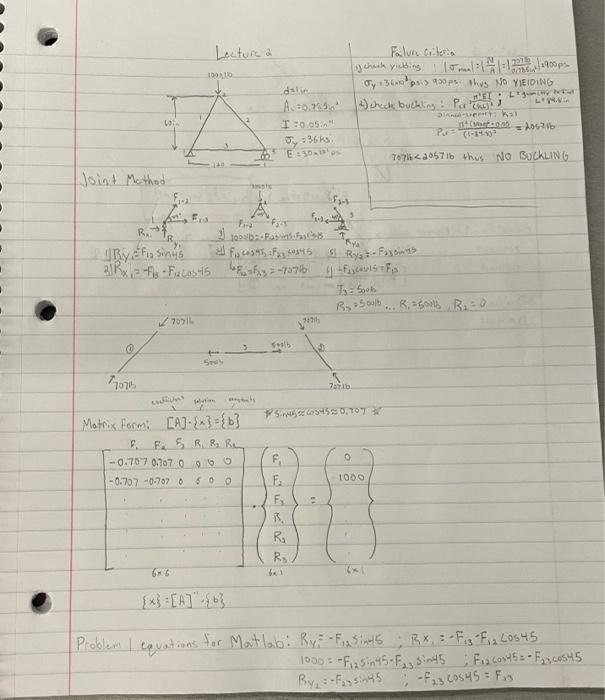 Lecture 2
1000 lb
60in
120
d=1in
A = 0.785in²
I = 0.05in⁴
σy = 36ksi
E = 30x10⁶ psi
Failure Criteria
1) check yielding : |σmax| = |N/A| = |707lb/0.785in²| = 900psi
σy = 36x10³ psi > 900psi. thus NO YIEIDING
2) check buckling : Pcr = π²EI/(KL)² ;
pinned support: k=1
= 20571b
7071b < 20571b thus NO BUCKLING
Joint Method
F1-2
F1-3
Rx
F1-2
F2-3
F2-3
Ry2
1) Ry1 = -F12 sin45
2) Rx1 = -F13 - F12 cos45
3) 1000lb = -F12 sin45 - F23 sin45
4) F12 cos45 = F23 cos45
F12 = F23 = -707lb
5) Ry2 = -F23 sin45
6) -F23 cos45 = F13
F3 = 500lb
R3 = 500lb ... R1 = 500lb, R2 = 0
707lb
①
707lb
500lb
3
500lb
707lb
②
707lb
coefficient solution constants
Matrix Form: [A]·{x} = {b}
* sin45 ≈ cos45 ≈ 0.707 *
F1 F2 F3 R1 R2 R3
-0.707 0.707 0 0 0 0
-0.707 -0.707 0 0 0 0
6x6
F1
F2
F3
R1
R2
R3
6x1
=
0
1000
6x1
{x} = [A]⁻¹·{b}
Problem 1 equations for Matlab: Ry1 = -F12 sin45 ; Rx1 = -F13 - F12 cos45
1000 = -F12 sin45 - F23 sin45 ; F12 cos45 = -F23 cos45
Ry2 = -F23 sin45 ; -F23 cos45 = F13